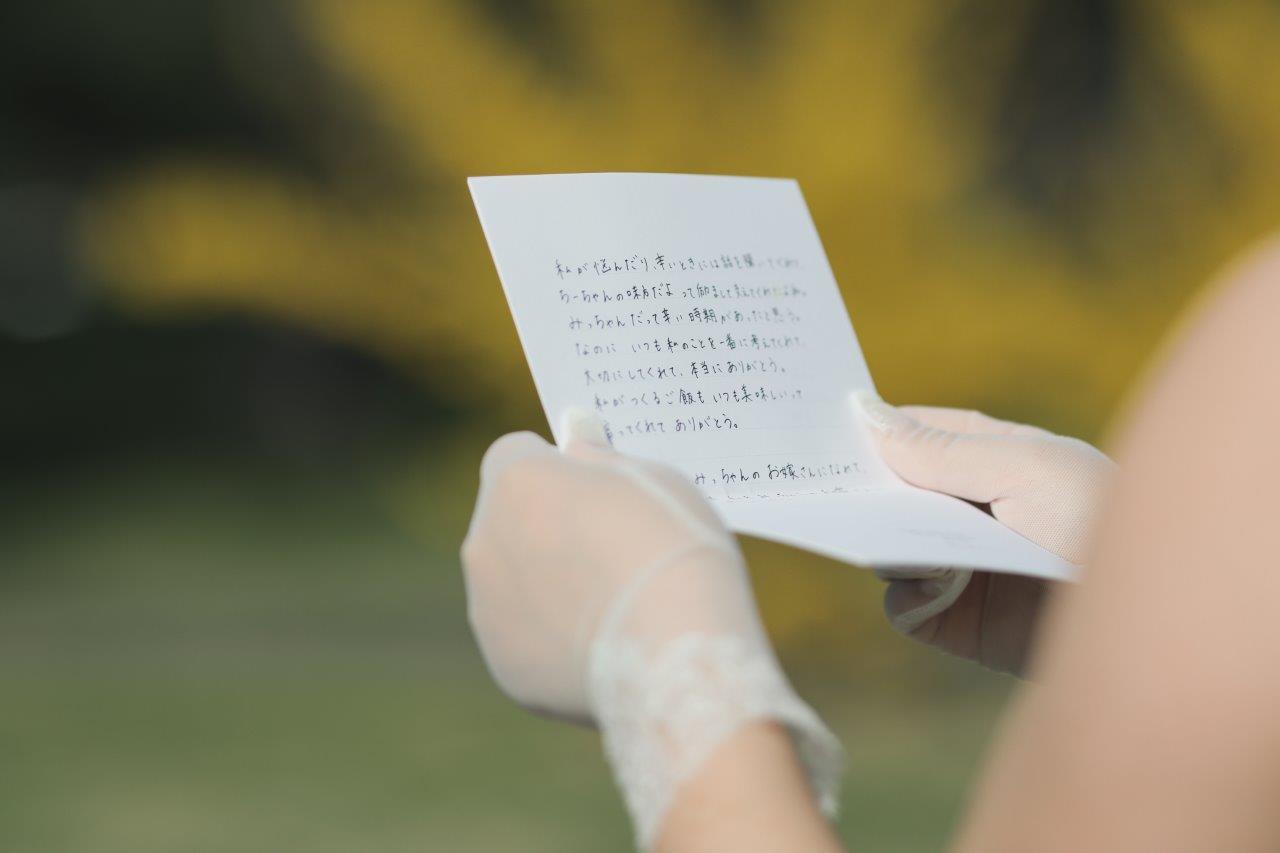 私が悩んだり、辛いときには話を聞いてくれて
ちーちゃんの味方だよ って励まして支えてくれたよね。
みっちゃんだって辛い時期があったと思う。
なのに いつも私のことを一番に考えてくれて
大切にしてくれて、本当にありがとう。
私がつくるご飯も いつも美味しいって
言ってくれて ありがとう。
みっちゃんの お嫁さんになれて、